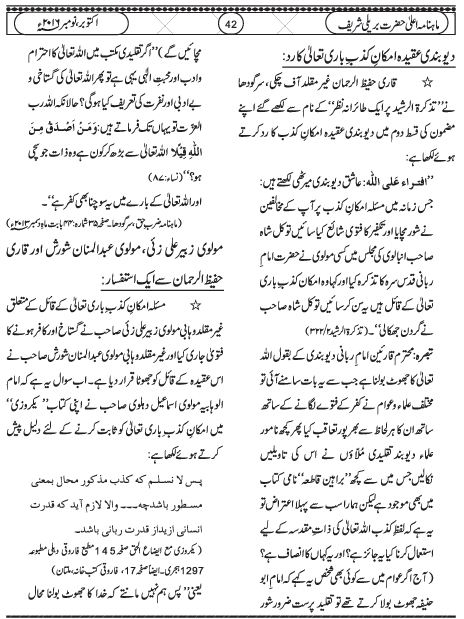 ماہنامہ اعلیٰ حضرت بریلی شریف
42
اکتوبر، نومبر ۲۰۱۶ء
دیوبندی عقیدہ امکانِ کذبِ باری تعالیٰ کا رد:
☆ قاری حفیظ الرحمان غیر مقلد آف چکی، سرگودھا
نے ”تذکرۃ الرشید پر ایک طائرانہ نظر“ کے نام سے لکھے گئے اپنے
مضمون کی قسط دوم میں دیوبندی عقیدہ امکان کذب کا رد کرتے
ہوئے لکھا ہے:
”افتراء علی اللہ: عاشق دیوبندی میرٹھی لکھتے ہیں:
جس زمانہ میں مسئلہ امکانِ کذب پر آپ کے مخالفین
نے شور مچایا اور تکفیر کا فتویٰ شائع کیا سائیں توکل شاہ
صاحب انبالوی کی مجلس میں کسی مولوی نے حضرت امام
ربانی قدس سرہ کا تذکرہ کیا اور کہا وہ امکان کذبِ باری
تعالیٰ کے قائل ہیں یہ سن کر سائیں توکل شاہ صاحب
نے گردن جھکالی“۔ (تذکرۃ الرشید ۳۲۲/۲)
تبصرہ: محترم قارئین امام ربانی دیوبندی کے بقول اللہ
تعالیٰ کا جھوٹ بولنا ہے جب سے یہ بات سامنے آئی تو
مختلف علماء و عوام نے کفر کے فتوے لگانے کے ساتھ
ساتھ ان کا ہر لحاظ سے بھرپور تعاقب کیا پھر کچھ نامور
علماء دیوبند تقلیدی مُلّاؤں نے اس کی تاویلیں
نکالیں جس میں سے کچھ ”براہین قاطعہ“ نامی کتاب
میں بھی موجود ہے لیکن ہمارا سب سے پہلا اعتراض تو
یہ ہے کہ لفظ کذب اللہ تعالیٰ کی ذاتِ مقدسہ کے لیے
استعمال کرنا کیا یہ جائز ہے؟ اور یہ کہاں کا انصاف ہے؟
(آج اگر عوام میں سے کوئی بھی شخص یہ کہے کہ امام ابو
حنیفہ جھوٹ بولا کرتے تھے تو تقلید پرست ضرور شور
مچائیں گے) ”اگر تقلیدی مکتب میں اللہ تعالیٰ کا احترام
وادب اور محبتِ الٰہی یہی ہے تو پھر اللہ تعالیٰ کی گستاخی و
بے ادبی اور نفرت کی تعریف کیا ہوگی؟ حالانکہ اللہ رب
العزت تو یہاں تک فرماتے ہیں: وَمَنْ اَصْدَقُ مِنَ
اللّٰهِ قِيْلًا اللہ تعالیٰ سے بڑھ کر کون ہے وہ ذات جو سچی
ہو؟“ (نساء: ۸۷)
اور اللہ تعالیٰ کے بارے میں یہ سوچنا بھی کفر ہے“۔
(ماہنامہ ضرب حق، سرگودھا، صفحہ ۳۵ شمارہ: ۴۳ بابت ماہ دسمبر ۲۰۱۳ء)
مولوی زبیر علی زئی، مولوی عبدالمنان شورش اور قاری
حفیظ الرحمان سے ایک استفسار:
☆ مسئلہ امکانِ کذب باری تعالیٰ کے قائل کے متعلق
غیر مقلد وہابی مولوی زبیر علی زئی صاحب نے گستاخ اور کافر ہونے کا
فتویٰ جاری کیا اور غیر مقلد وہابی مولوی عبدالمنان شورش صاحب نے
اس عقیدہ کے قائل کو جھوٹا قرار دیا ہے۔ اب سوال یہ ہے کہ امام
الوہابیہ مولوی اسماعیل دہلوی صاحب نے اپنی کتاب ”یکروزی“
میں امکانِ کذبِ باری تعالیٰ کو ثابت کرنے کے لئے دلیل پیش
کرتے ہوئے لکھا ہے:
پس لا نسلم کہ کذب مذکور محال بمعنی
مسطور باشدچہ۔۔۔ والا لازم آید کہ قدرت
انسانی ازیداز قدرت ربانی باشد۔
(یکروزی مع ایضاح الحق صفحہ 145 مطبع فاروقی دہلی مطبوعہ
1297 ہجری۔ ایضاً صفحہ 17، فاروقی کتب خانہ، ملتان)
یعنی ”پس ہم نہیں مانتے کہ خدا کا جھوٹ بولنا محال